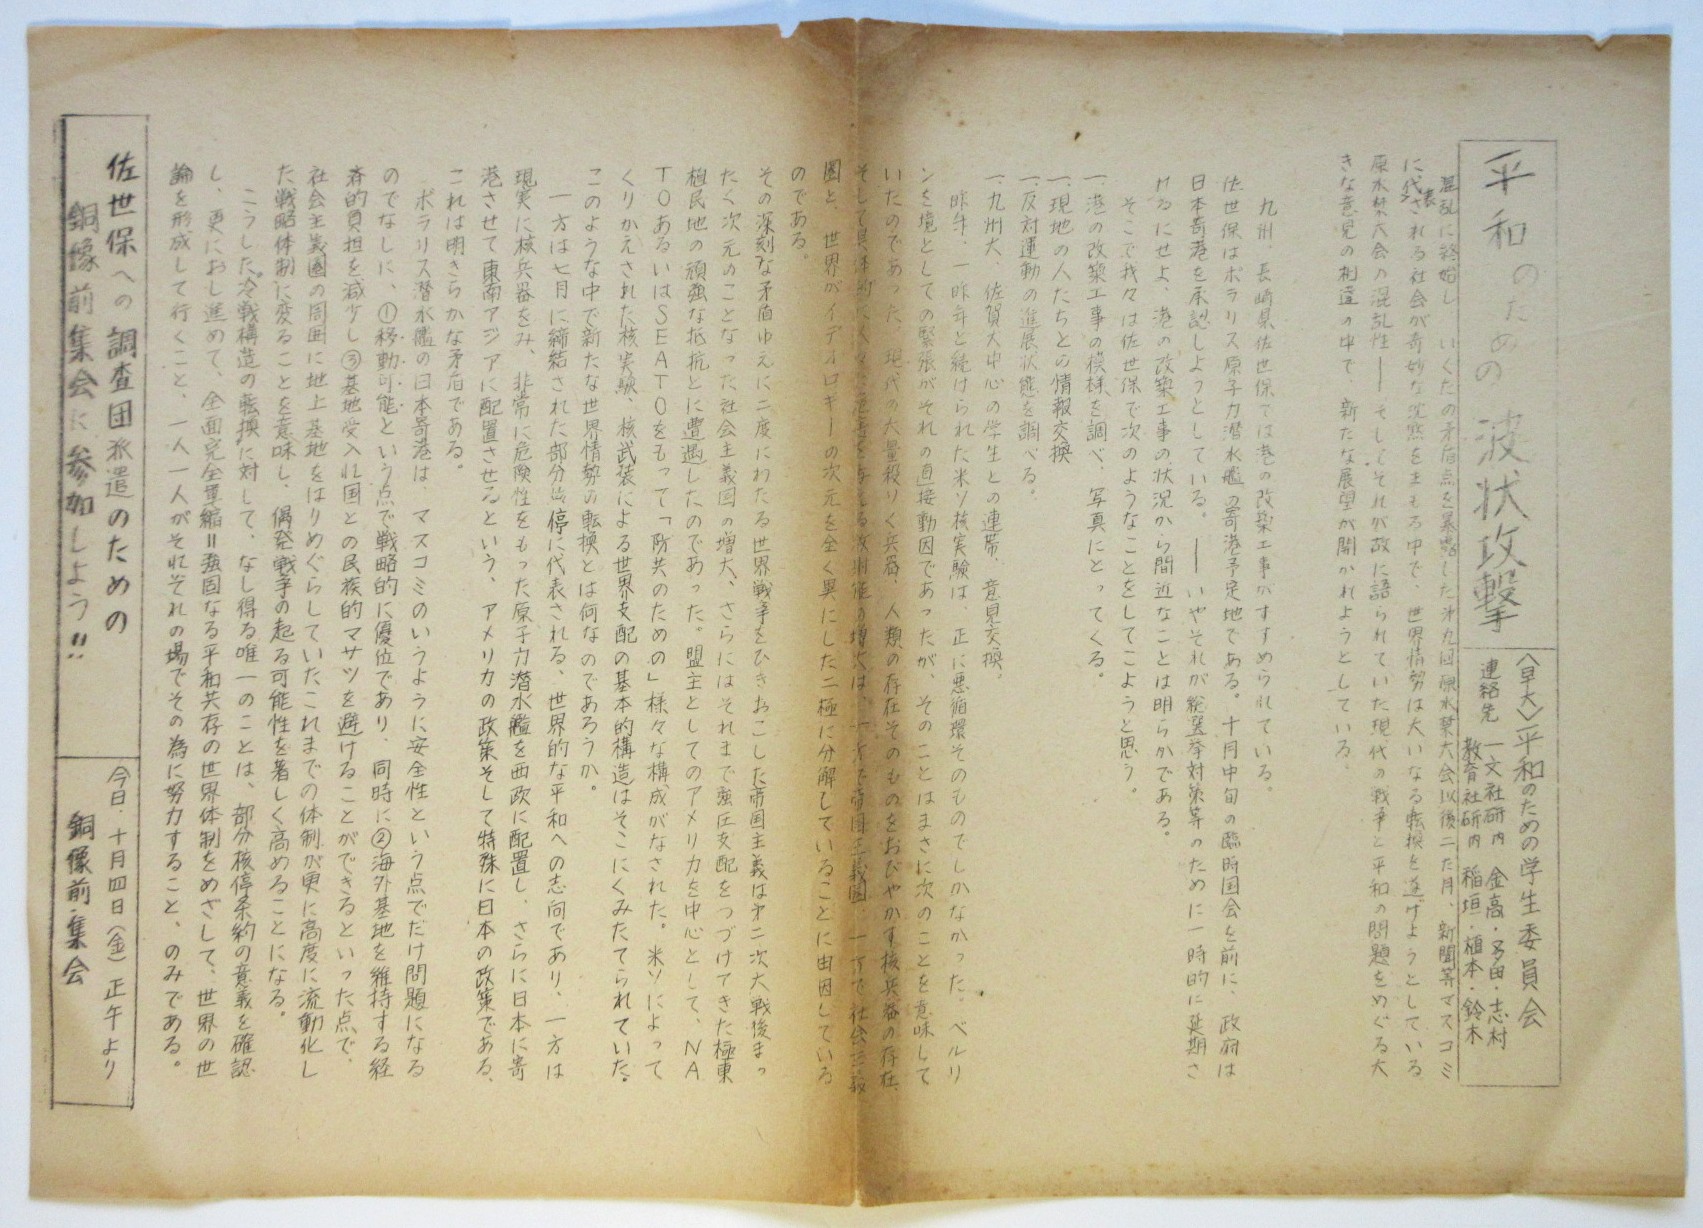 平和のための波状攻撃
〈早大〉平和のための学生委員会
連絡先 一文社研内 金高・多田・志村
教育社研内 稲垣・植本・鈴木
混乱に終始し、いくたの矛盾点を暴露した才九回原水禁大会以後二た月、新聞等マスコミ
に代表される社会が奇妙な沈黙をまもる中で、世界情勢は大いなる転換を遂げようとしている
原水禁大会の混乱性――そしてそれが故に語られていた現代の戦争と平和の問題をめぐる大
きな意見の相違の中で、新たな展望が開かれようとしている。
九州、長崎県佐世保では港の改築工事がすすめられている。
佐世保はポラリス原子力潜水艦の寄港予定地である。十月中旬の臨時国会を前に、政府は
日本寄港を承認しようとしている。――いやそれが総選挙対策等のために一時的に延期さ
れるにせよ、港の改築工事の状況から間近なことは明らかである。
そこで我々は佐世保で次のようなことをしてこようと思う。
一、港の改築工事の模様を調べ、写真にとってくる。
一、現地の人たちとの情報交換
一、反対運動の進展状態を調べる。
一、九州大、佐賀大中心の学生との連帯、意見交換。
昨年、一昨年と続けられた米ソ核実験は、正に悪循環そのものでしかなかった。ベルリ
ンを境としての緊張がそれの直接動因であったが、そのことはまさに次のことを意味して
いたのであった。現代の大量殺りく兵器、人類の存在そのものをおびやかす核兵器の存在、
そして具体的に人々に危害を与える放射能の増大は、一方で帝国主義国、一方で社会主義
圏と、世界がイデオロギーの次元を全く異にした二極に分解していることに由因している
のである。
その深刻な矛盾ゆえに二度にわたる世界戦争をひきおこした帝国主義は才二次大戦後まっ
たく次元のことなった社会主義国の増大、さらにはそれまで強圧支配をつづけてきた極東
植民地の頑強な抵抗とに遭遇したのであった。盟主としてのアメリカを中心として、NA
TOあるいはSEATOをもって「防共のための」様々な構成がなされた。米ソによって
くりかえされた核実験、核武装による世界支配の基本的構造はそこにくみたてられていた。
このような中で新たな世界情勢の転換とは何なのであろうか。
一方は七月に締結された部分核停に代表される、世界的な平和への志向であり、一方は
現実に核兵器をみ、非常に危険性をもった原子力潜水艦を西欧に配置し、さらに日本に寄
港させて東南アジアに配置させるという、アメリカの政策そして特殊に日本の政策である、
これは明きらかな矛盾である。
ポラリス潜水艦の日本寄港は、マスコミのいうように安全性という点でだけ問題になる
のでなしに、①移動可能という点で戦略的に優位であり、同時に②海外基地を維持する経
済的負担を減少し③基地受入れ国との民族的マサツを避けることができるといった点で、
社会主義國の周囲に地上基地をはりめぐらしていたこれまでの体制が更に高度に流動化し
た戦略体制に変ることを意味し、偶発戦争の起る可能性を著しく高めることになる。
こうした冷戦構造の転換に対して、なし得る唯一のことは、部分核停条約の意義を確認
し、更におし進めて、全面完全軍縮＝強固なる平和共存の世界体制をめざして、世界の世
論を形成して行くこと、一人一人がそれぞれの場でその為に努力すること、のみである。
佐世保への調査団派遣のための
銅像前集会に参加しよう!!
今日・十月四日(金)正午より
銅像前・集会